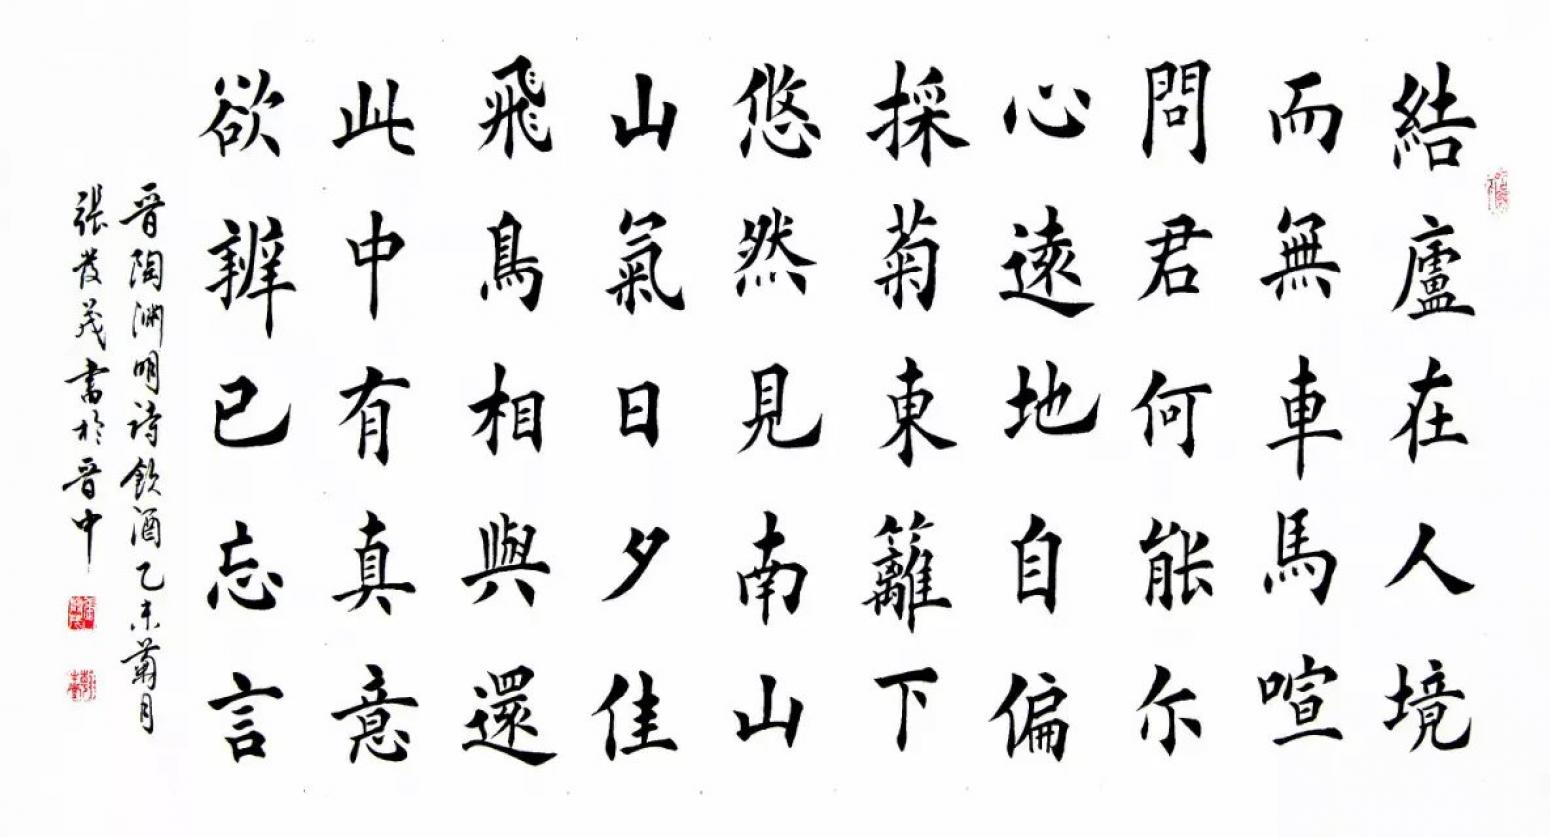 結廬在人境
而無車馬喧
問君何能尔
心遠地自偏
採菊東籬下
悠然見南山
山氣日夕佳
飛鳥相與還
此中有真意
欲辨已忘言
晉陶淵明詩飲酒乙未菊月
張發茂書於晉中